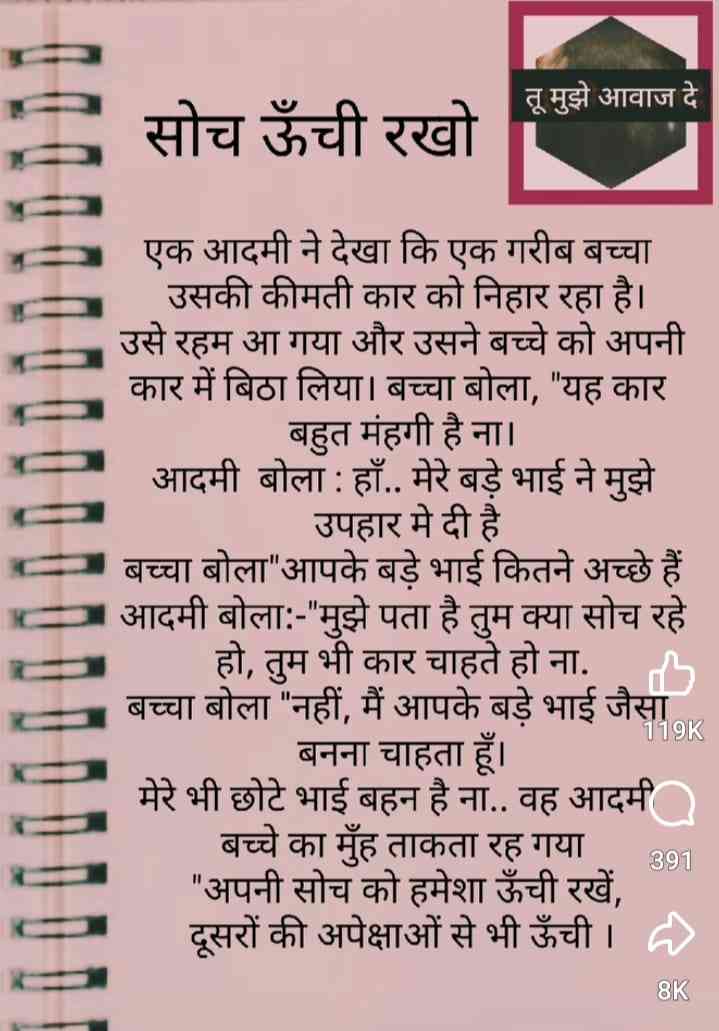 तू मुझे आवाज दे
सोच ऊँची रखो
एक आदमी ने देखा कि एक गरीब बच्चा
उसकी कीमती कार को निहार रहा है।
उसे रहम आ गया और उसने बच्चे को अपनी
कार में बिठा लिया। बच्चा बोला, "यह कार
बहुत मंहगी है ना।
आदमी बोला : हाँ.. मेरे बड़े भाई ने मुझे
उपहार मे दी है
बच्चा बोला"आपके बड़े भाई कितने अच्छे हैं
आदमी बोला:-"मुझे पता है तुम क्या सोच रहे
हो, तुम भी कार चाहते हो ना.
बच्चा बोला "नहीं, मैं आपके बड़े भाई जैसा
119K
बनना चाहता हूँ।
मेरे भी छोटे भाई बहन है ना.. वह आदमी
बच्चे का मुँह ताकता रह गया
391
"अपनी सोच को हमेशा ऊँची रखें,
दूसरों की अपेक्षाओं से भी ऊँची ।
8K